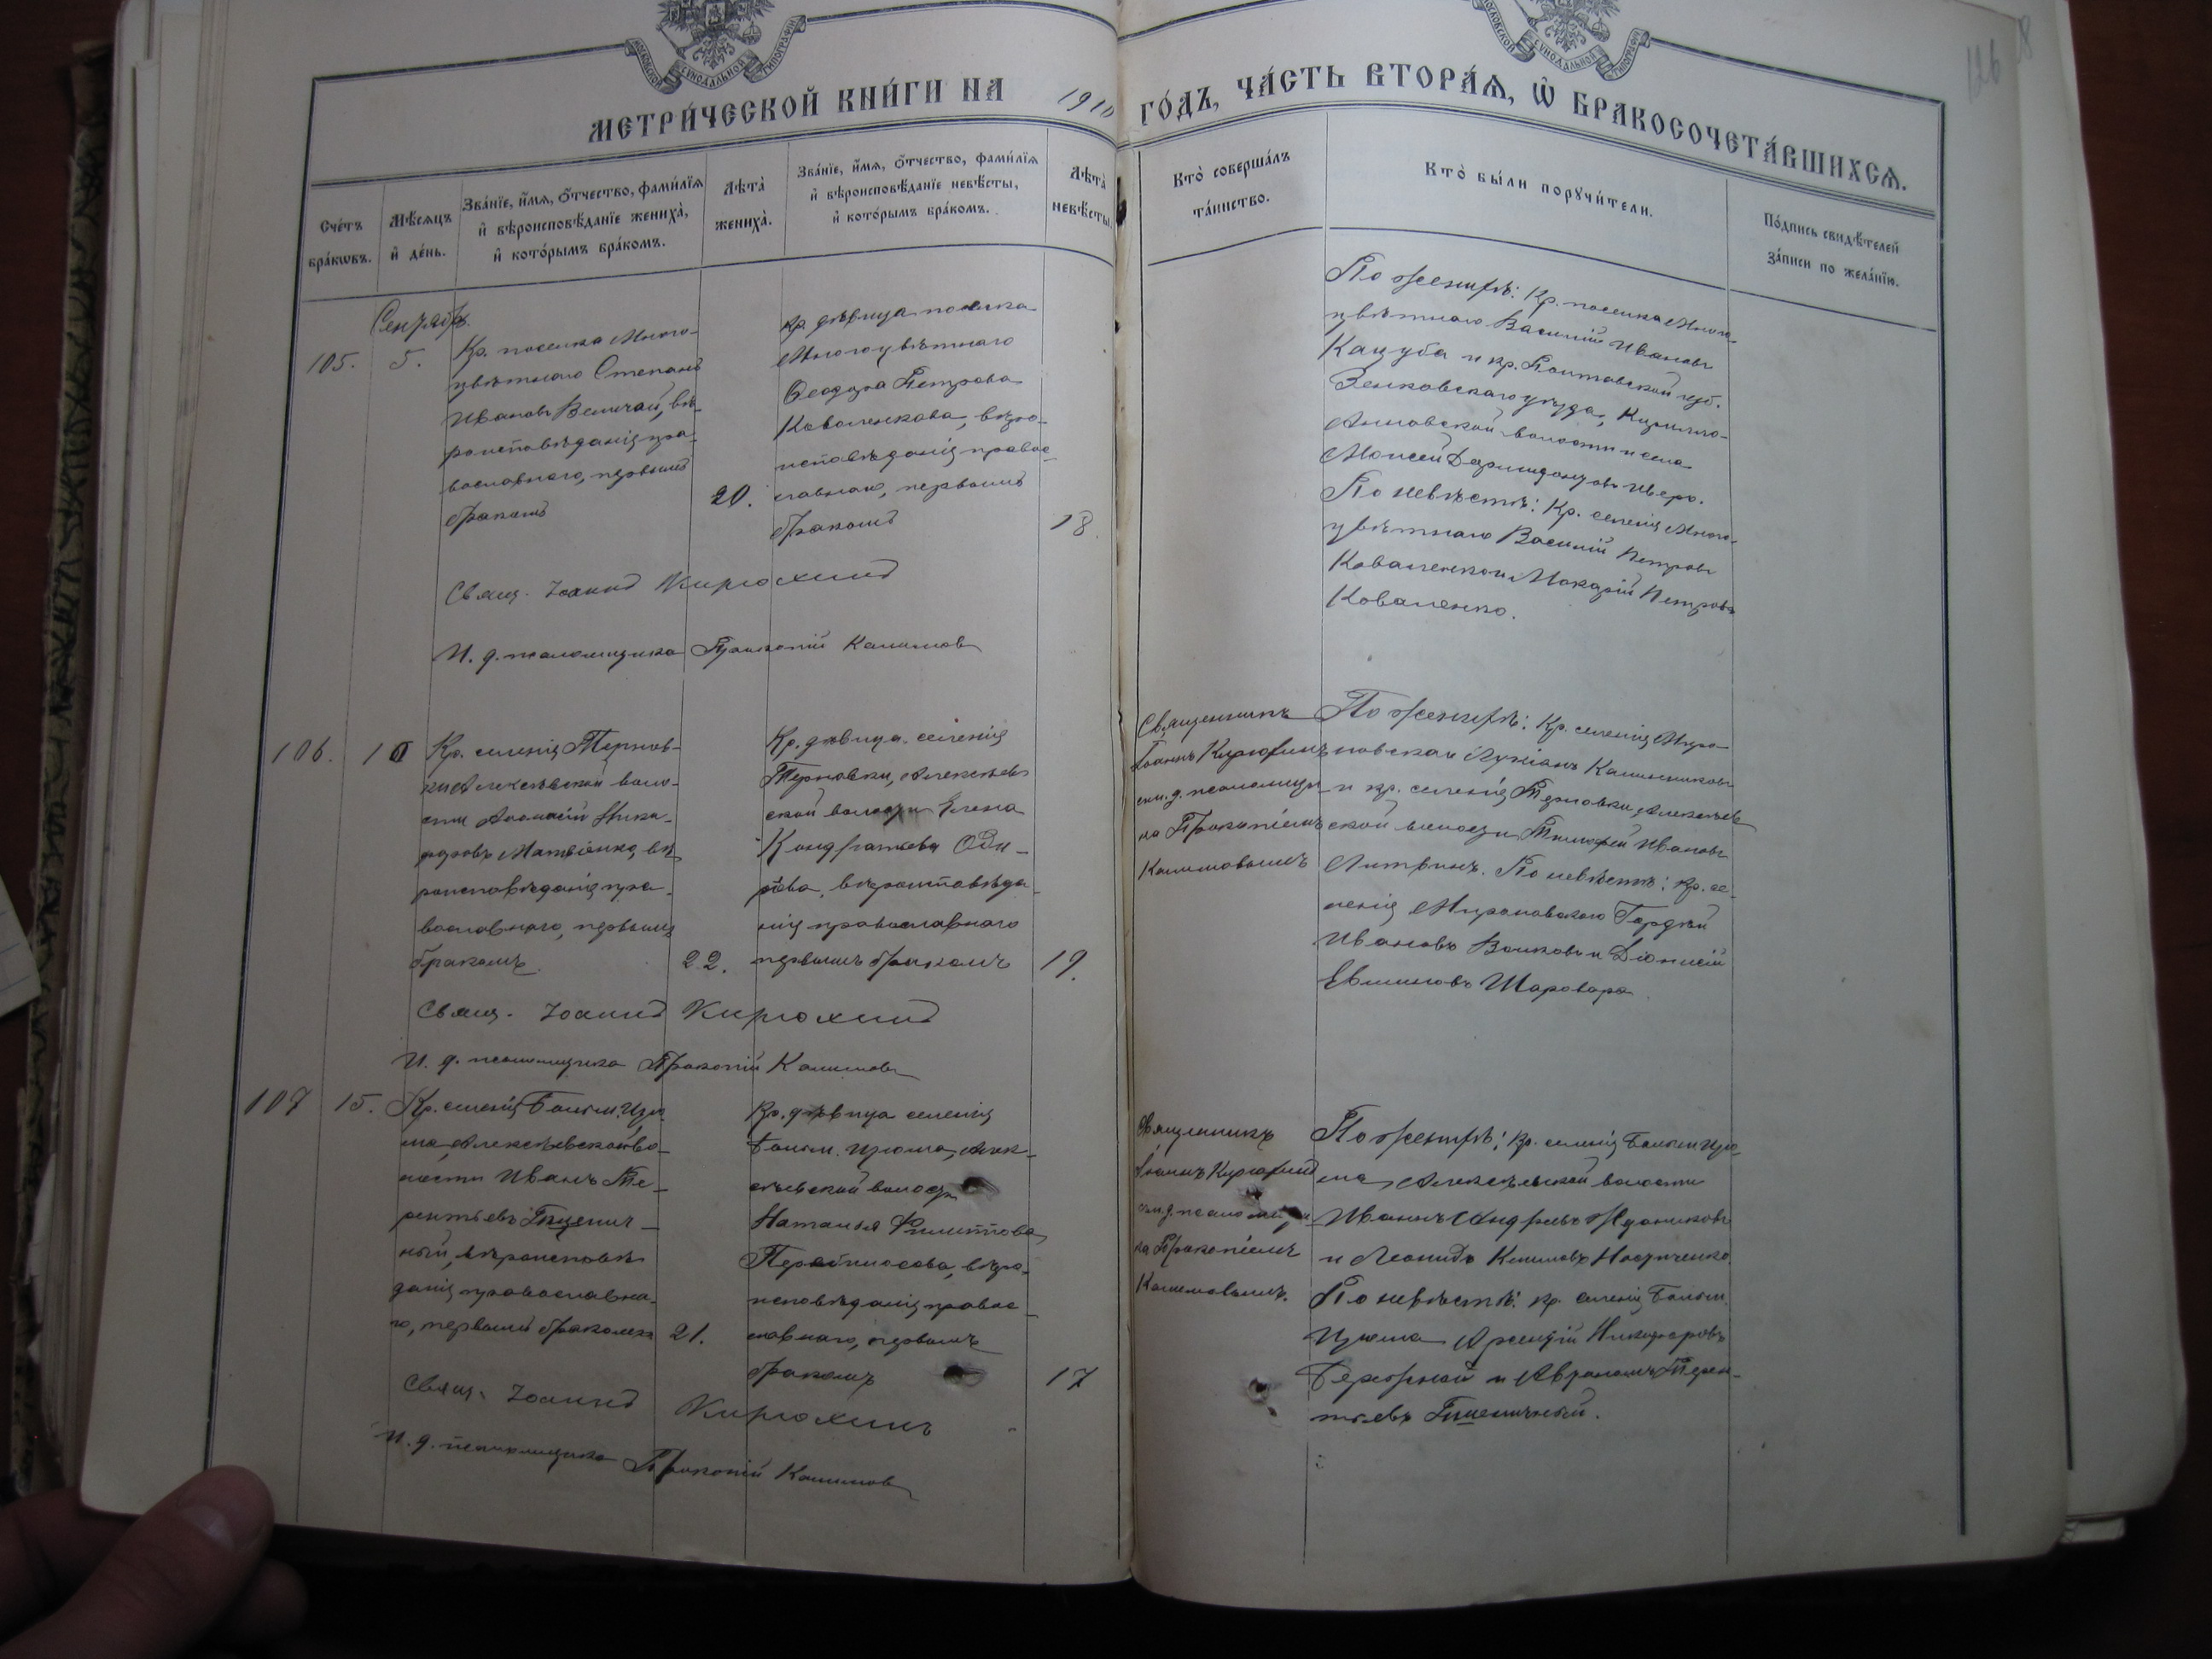 МОСКОВСКОЙ СѴНОДАЛЬНОЙ ТИПОГРАФІИ
МОСКОВСКОЙ СѴНОДАЛЬНОЙ ТИПОГРАФІИ
126
МЕТРИ́ЧЕСКОЙ КНИ́ГИ НА 1910 ГО́ДЪ, ЧА́СТЬ ВТОРА́Ѧ, Ѽ БРАКОСОЧЕТА́ВШИХСѦ.
Сче́тъ бра́кѡвъ.
Мѣ́сѧцъ и҆ де́нь.
Зва́нїе, и҆́мѧ, ѻ҆́тчество, фами́лїѧ и҆ вѣроисповѣ́данїе жениха̀, и҆ кото́рымъ бра́комъ.
Лѣта̀ жениха̀.
Зва́нїе, и҆́мѧ, ѻ҆́тчество, фами́лїѧ и҆ вѣроисповѣ́данїе невѣ́сты, и҆ кото́рымъ бра́комъ.
Лѣта̀ невѣ́сты.
Кто̀ соверша́лъ та́инство.
Кто̀ бы́ли порꙋчи́тели.
По́дпись свидѣ́телей за́писи по жела́нїю.
105.
5.
Кр. поселка Много-
цвѣтнаго Степанъ
Ивановъ Величай, вѣ-
роисповѣданія пра-
вославнаго, первымъ
бракомъ
20.
Кр. дѣвица поселка
Многоцвѣтнаго
Ѳеодора Петрова
Коваленкова, вѣро-
исповѣданія правос-
лавнаго, первымъ
бракомъ
18.
По женихѣ: Кр. поселка Много-
цвѣтнаго Василій Ивановъ
Кацуба и кр. Полтавской губ.
Зеньковскаго уѣзда,
волости и села
Моисей
По невѣстѣ: Кр. селенія Много-
цвѣтнаго Василій Петровъ
Коваленко и Макарій Петровъ
Коваленко.
Свящ. Іоаннъ Кирюхинъ
И. д. псаломщика Прокопій Калимовъ
106.
10
Кр. селенія Тернов-
ки Алексѣевской воло-
сти Аѳанасій Ники-
форовъ Матвіенко, вѣ-
роисповѣданія пра-
вославнаго, первымъ
бракомъ
22.
Кр. дѣвица селенія
Терновки, Алексѣев-
ской волости Елена
Кондратьева
вѣроисповѣда-
нія православнаго
первымъ бракомъ
19.
Священникъ
Іоаннъ Кирюхинъ
съ и. д. псаломщи-
ка Прокопіемъ
Калимовымъ
По женихѣ: Кр. селенія Миро-
новскаго Лукіанъ Калинниковъ
и кр. селенія Терновки, Алексѣев-
ской волости Тимофей Ивановъ
Литвинъ. По невѣстѣ: Кр. се-
ленія Мироновскаго Гордѣй
Ивановъ Волковъ и Діонисій
Евѳимовъ Шаровара
Свящ. Іоаннъ Кирюхинъ
И. д. псаломщика Прокопій Калимовъ
107
15.
Кр. селенія Больш. Изю-
ма, Алексѣевской во-
лости Иванъ Те-
рентьевъ Пшенич-
ный, вѣроисповѣ-
данія православна-
го, первымъ бракомъ
21.
Кр. дѣвица селенія
Больш. Изюма, Алек-
сѣевской волости
Наталья Филиппова
вѣро-
исповѣданія правос-
лавнаго, первымъ
бракомъ
17
Священникъ
Іоаннъ Кирюхинъ
съ и. д. псаломщи-
ка Прокопіемъ
Калимовымъ.
По женихѣ: Кр. селенія Больш. Изю-
ма, Алексѣевской волости
Иванъ Андреевъ
и Леонидъ
По невѣстѣ: Кр. селенія Больш.
Изюма Арсеній Никифоровъ
и Авраамъ Терен-
тьевъ Пшеничный.
Свящ. Іоаннъ Кирюхинъ
И. д. псаломщика Прокопій Калимовъ